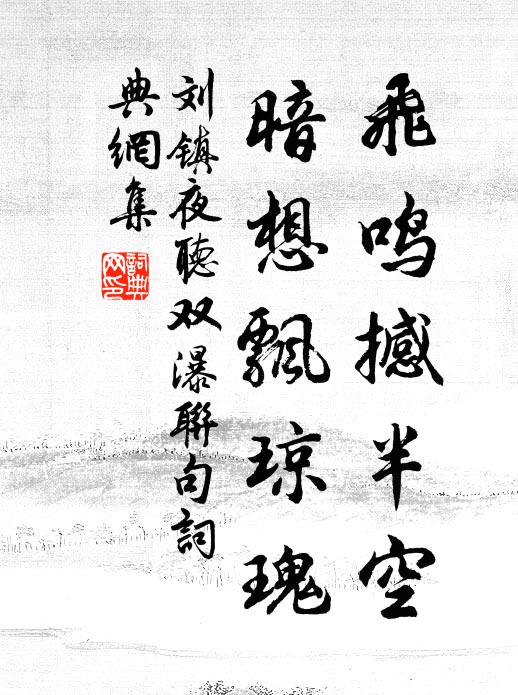 飛鸣撼半空
暗想飄琼瑰
刘镇夜聽双瀑聯句詞
典網集
詞典網印